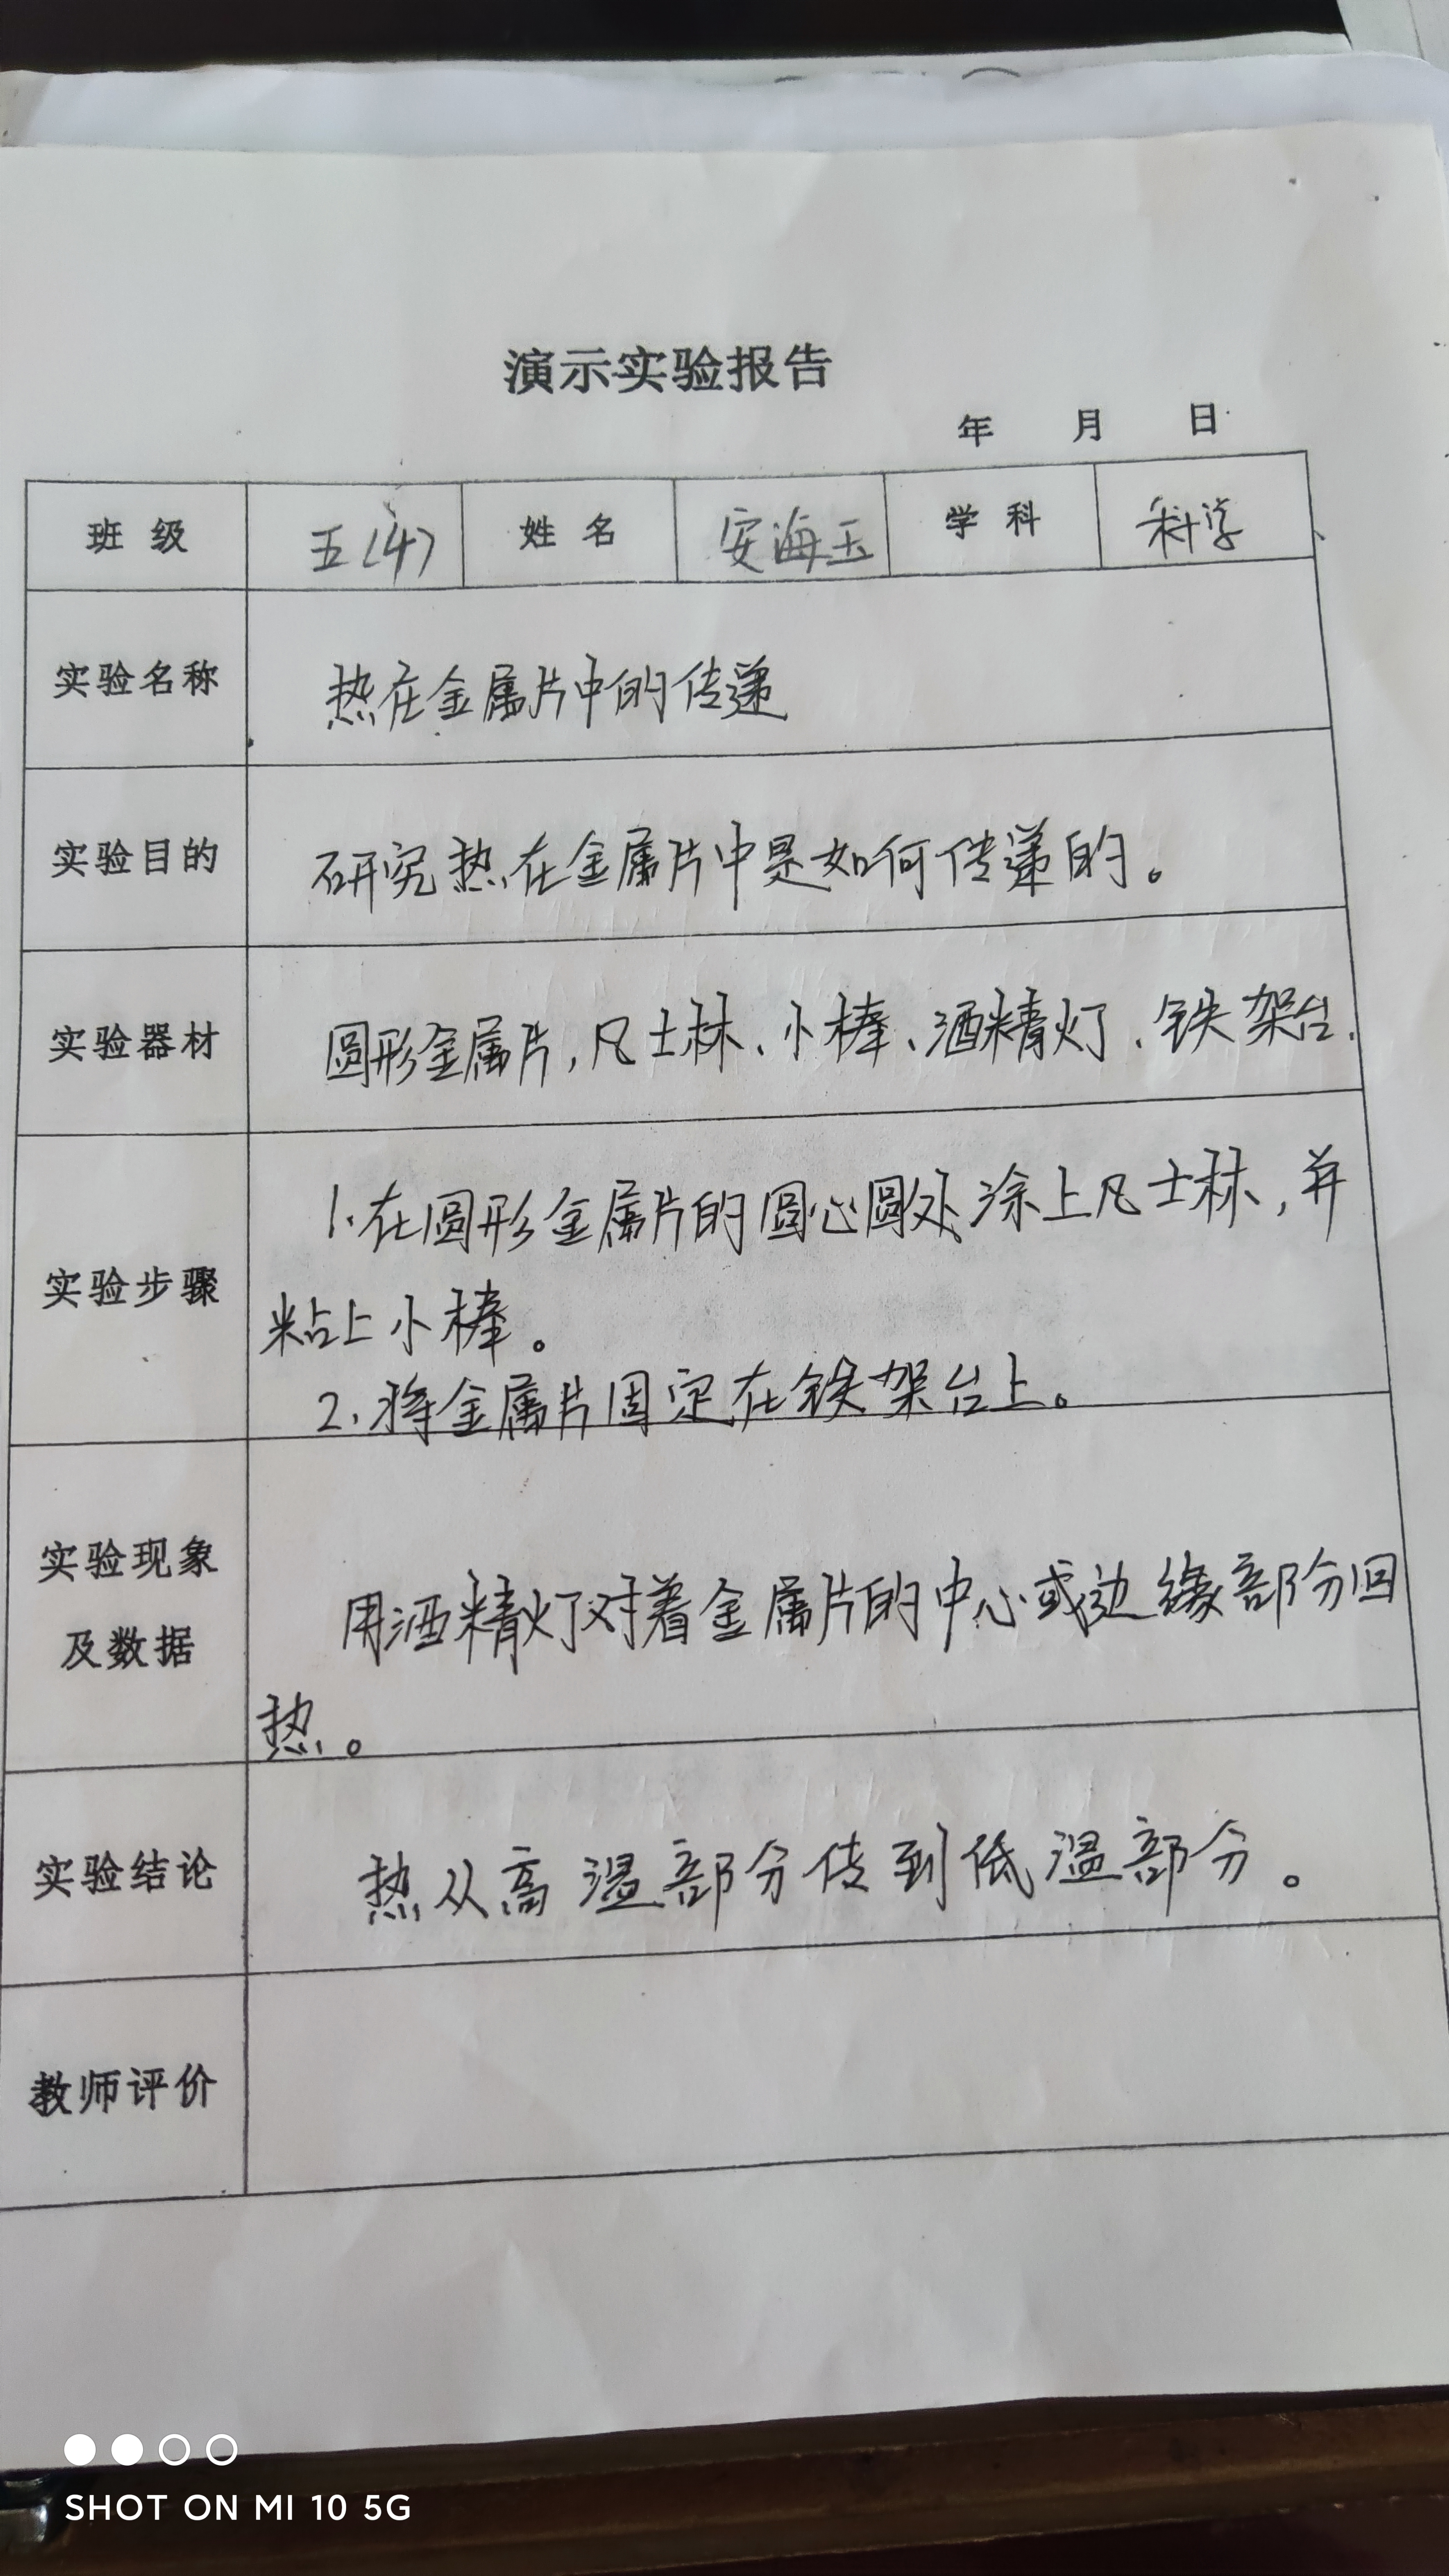 演示实验报告
年 月 日
班级 五(4) 姓名 安海玉 学科 科学
实验名称 热在金属片中的传递
实验目的 研究热在金属片中是如何传递的。
实验器材 圆形金属片,凡士林、小棒、酒精灯、铁架台.
1.在圆形金属片的圆心圆处涂上凡士林,并
实验步骤
粘上小棒。
2.将金属片固定在铁架台上。
实验现象
用酒精灯对着金属片的中心或边缘部分回
及数据
热。
实验结论 热从高温部分传到低温部分。
教师评价
SHOT ON MI 10 5G